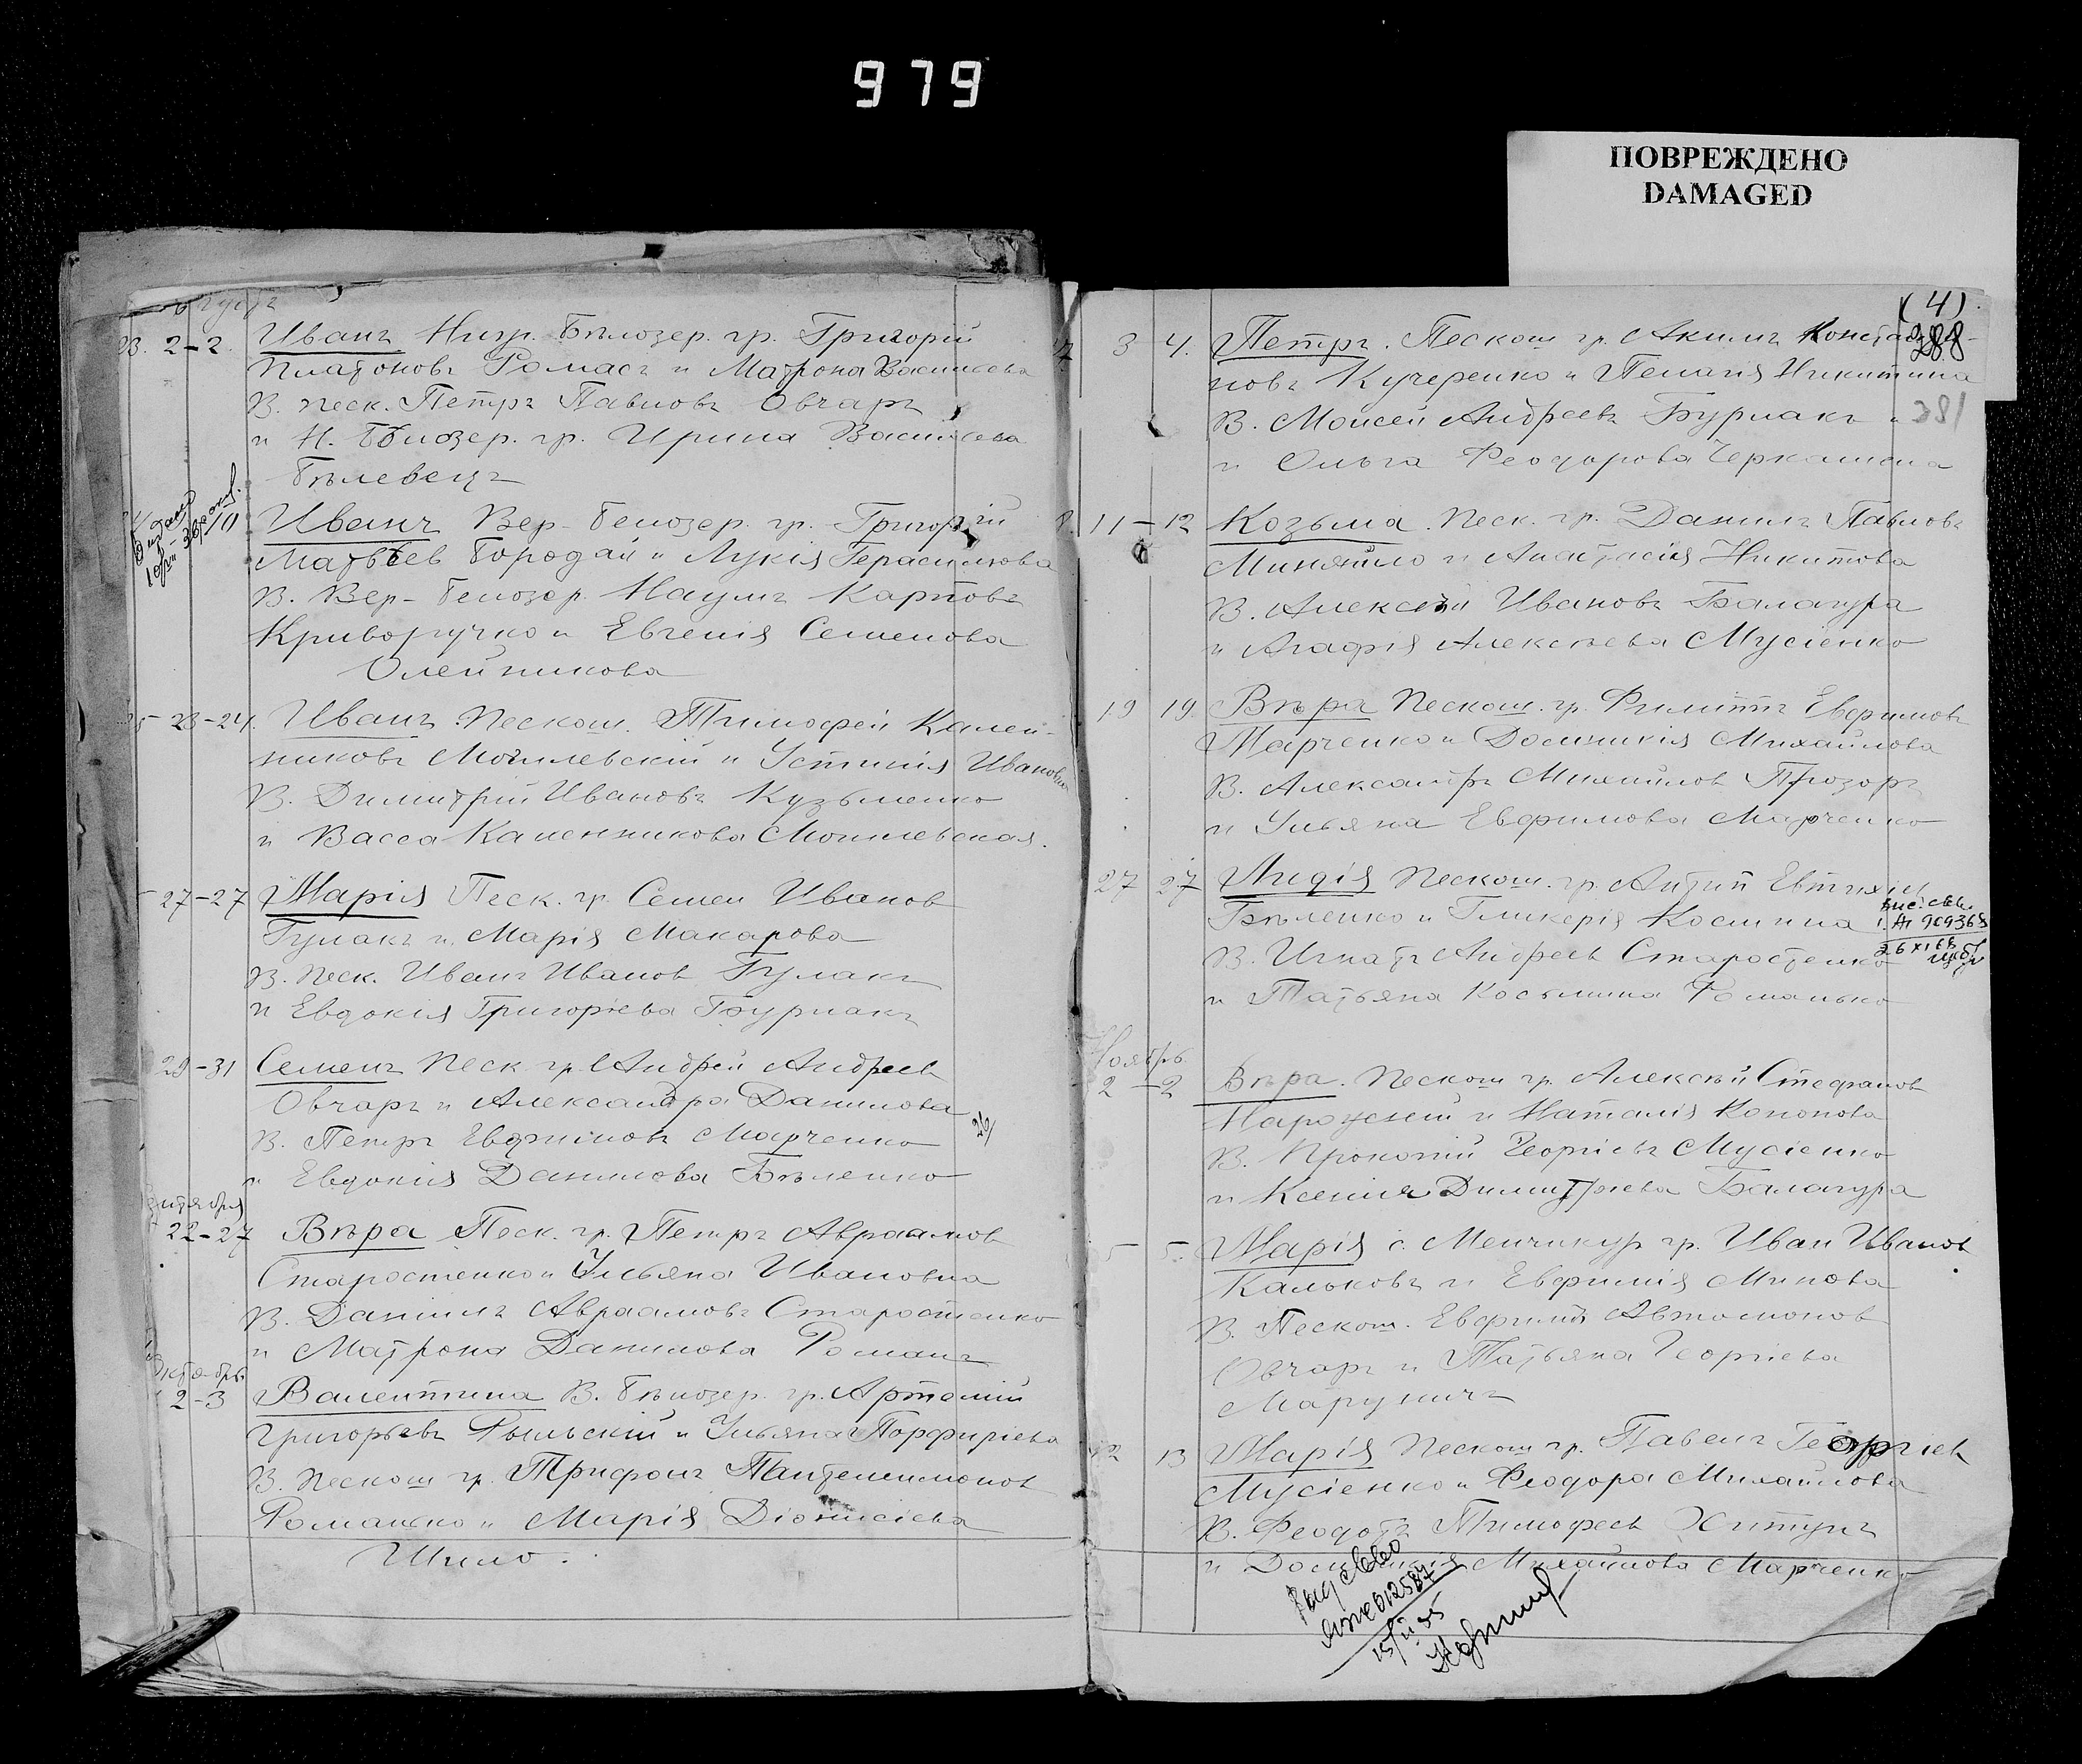 979
ПОВРЕЖДЕНО
DAMAGED
23. 2-2. Иванъ Низр. Бѣлозер. гр. Григорій
Платоновъ Ромасъ и Матрона Васильева
В. Песк. Петръ Павловъ Овчаръ
и Н. Бѣлозер. гр. Ирина Васильева
Бѣлевецъ
Иванъ Вер-Белозер. гр. Григорій
Матвѣев Бородай и Лукія Герасимова
В. Вер-Белозер. Наумъ Карповъ
Криворучко и Евгенія Семенова
Олейникова
23-24. Иванъ Пескош. Тимофей Калей-
никовъ Могилевскій и Устинія Иванова
В. Димитрій Ивановъ Кузьменко
и Васса Каленникова Могилевская.
27-27 Марія Песк. гр. Семен Иванов
Гулакъ и Марія Макарова
В. Песк. Иванъ Иванов Гулакъ
и Евдокія Григорьева Бурлакъ
29-31 Семенъ Песк гр. Андрей Андреев
Овчаръ и Александра Данилова
В. Петръ Евфимовъ Марченко
и Евдокия Данилова Бѣленко
26/
22-27 Вѣра Песк. гр. Петръ Авраамов
Старостенко и Ульяна Ивановна
В. Даниилъ Авраамовъ Старостенко
и Матрона Данилова Романъ
Октябрь
2-3 Валентина В. Бѣлозер. гр. Артемій
Григорьевъ Рыльскій и Ульяна Порфиріева
В. Пескош гр. Трифонъ Пантелеимонов
Романько и Марія Діонисіева
Шило.
(4)
388
381
3 4. Петръ. Пескош гр. Акимъ Констан-
новъ Кучеренко и Пелагія Никитина
В. Моисей Андреевъ Бурлакъ и
и Ольга Феодорова Черкашина
11-12 Козьма. Песк. гр. Даніилъ Павловъ
Миняйло и Анастасія Никитова
В. Алексѣй Ивановъ Балагура
и Агафія Алексѣева Мусіенко
19 19. Вѣра Пескош. гр. Филиппъ Евфимовъ
Марченко и Домникія Михайлова
В. Александръ Михайлов Прозоръ
и Ульяна Евфимова Марченко
27 27 Лидія Пескош. гр. Антип Евтихіев
Бѣленко и Гликерія Космина
В. Игнатъ Андреев Старостенко
и Татьяна Косьмина Романько
Ноябрь
2-2 Вѣра. Пескош гр. Алексѣй Стефанов
Нарожній и Наталія Кононова
В. Прокопій Георгіевъ Мусіенко
и Ксенія Димитріева Балагура
5 5. Марія с. Менчикур гр. Иван Иванов
Кальковъ и Евфимія Минова
В. Пескош. Евфимій Автомонов
Овчаръ и Татьяна Георгіева
Маруничъ
12 13 Марія Пескош гр. Павелъ Георгіев
Мусіенко и Феодора Михайлова
В. Феодотъ Тимофеев Хитунъ
и Домникія Михайлова Марченко